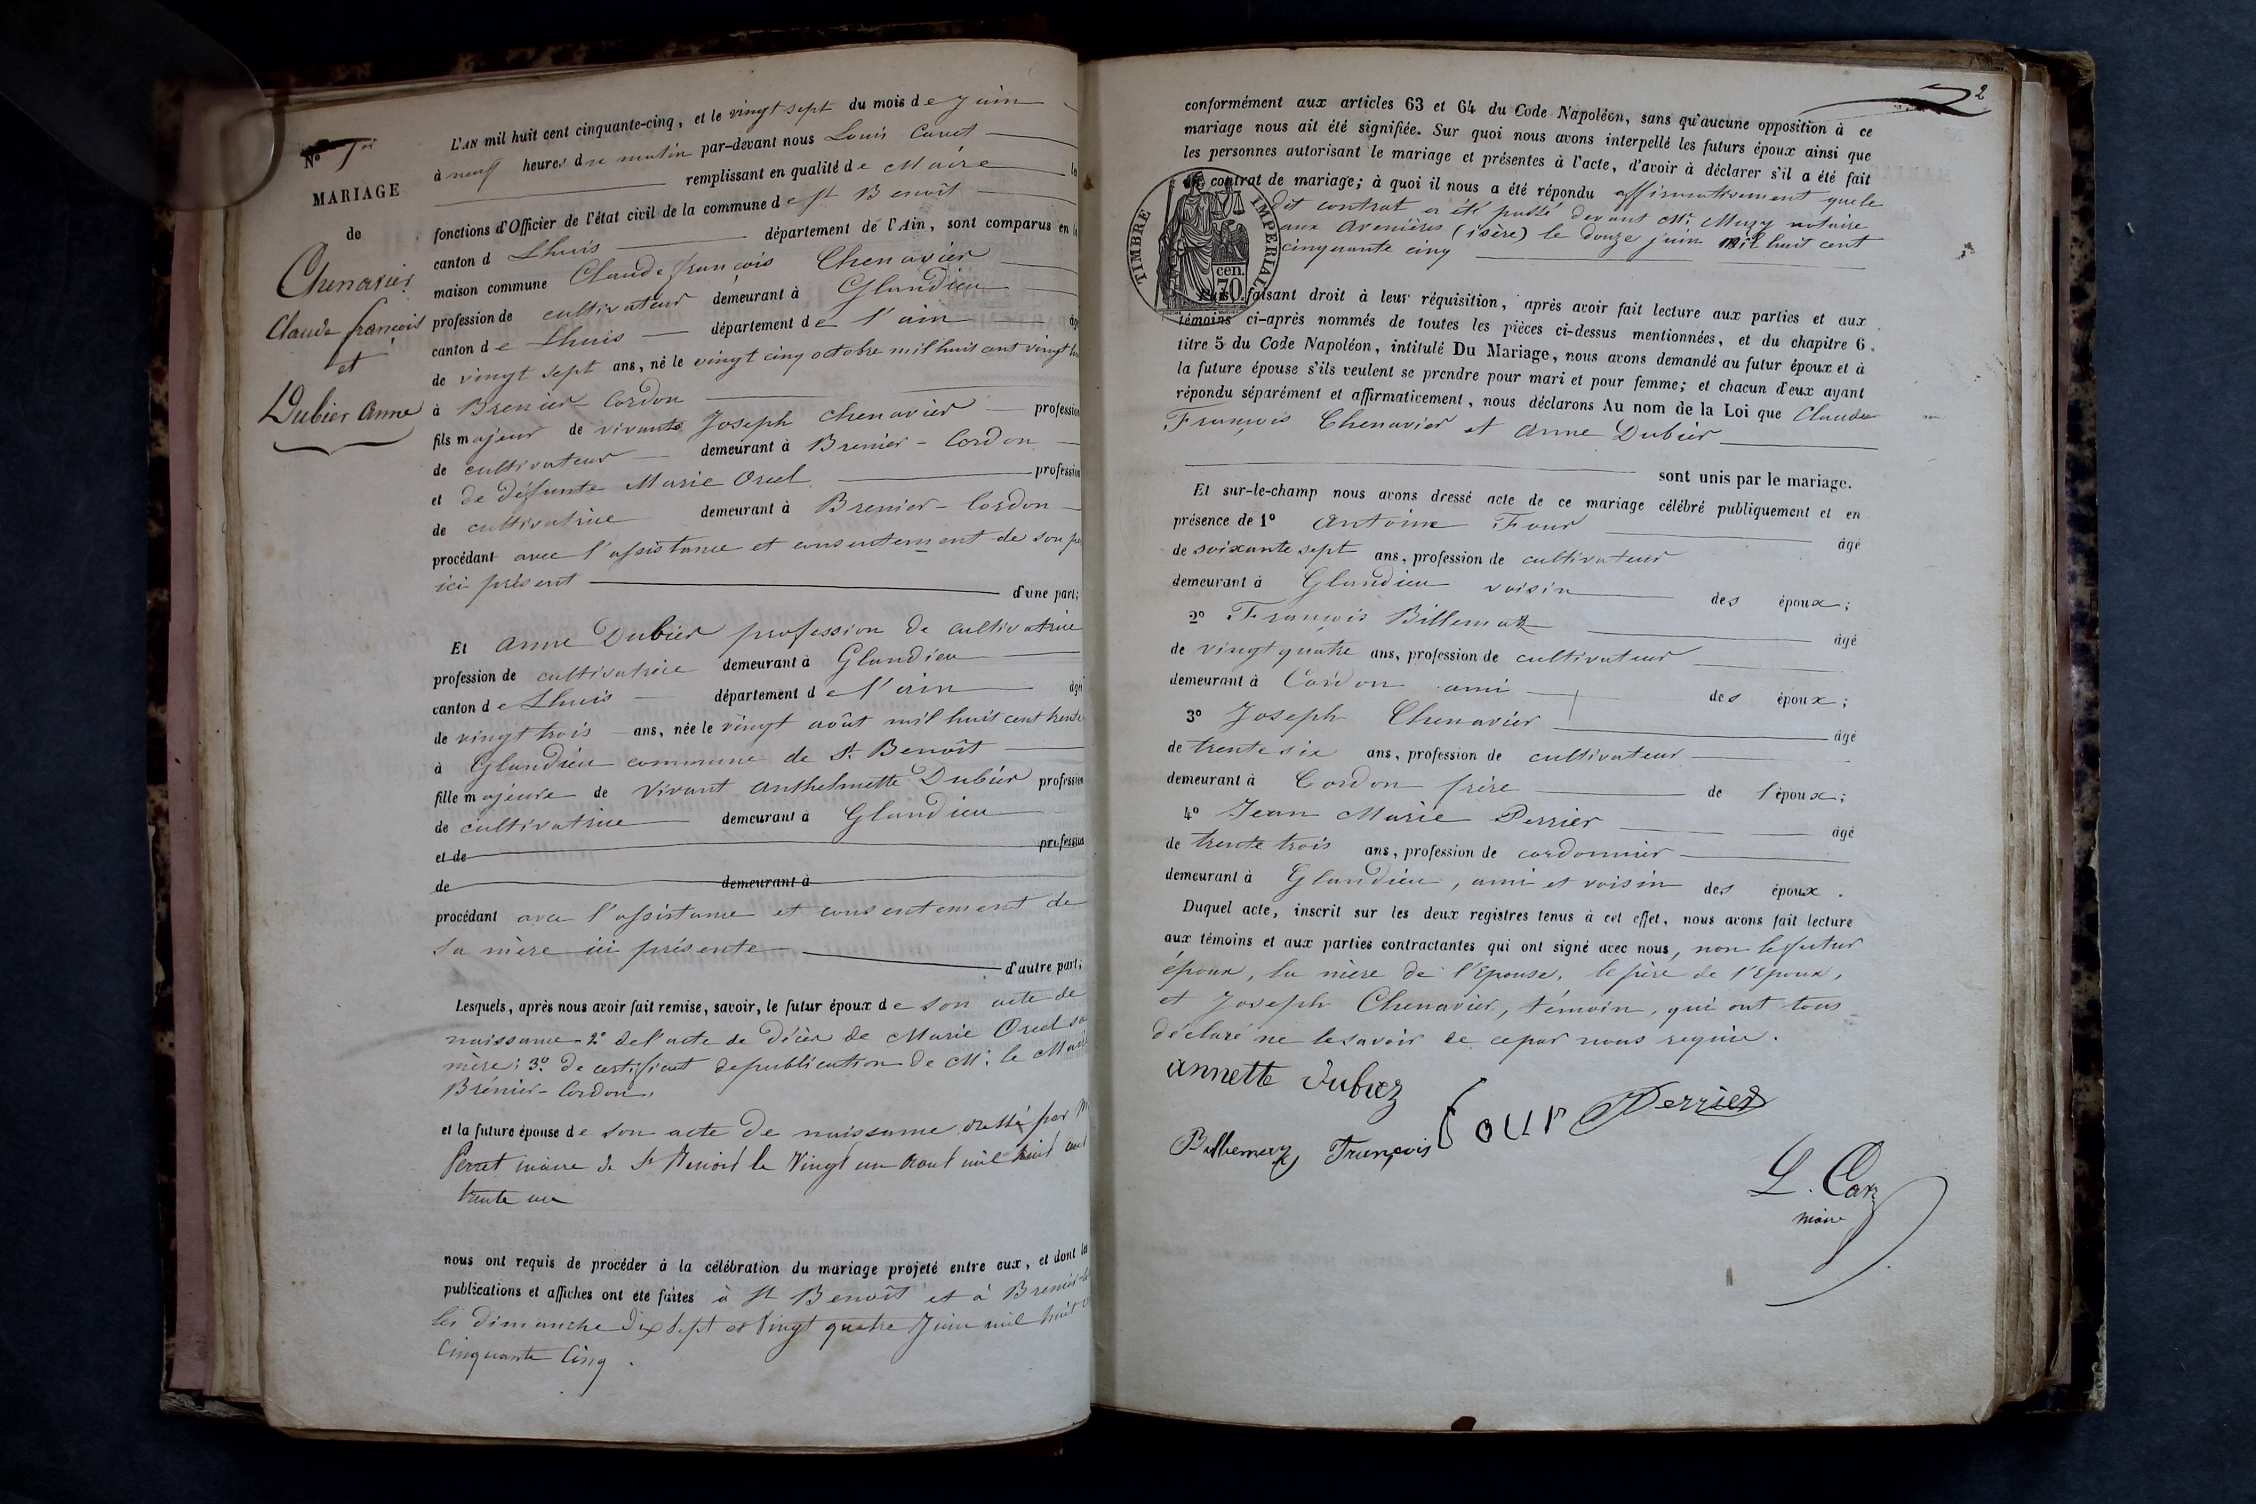 No 1er
MARIAGE
de
Chenavier
Claude françois
et
Dubier Anne
L'AN mil huit cent cinquante-cinq, et le vingt sept du mois de Juin
à neuf heures du matin par-devant nous Louis
remplissant en qualité de Maire
fonctions d'Officier de l'état civil de la commune de St Benoît
canton d Lhuis département de l'Ain, sont comparus en
maison commune Claude françois Chenavier
profession de cultivateur demeurant à Glandieu
canton de Lhuis département de l'ain
de vingt sept ans, né le vingt cinq octobre mil huit cent vingt
à Brenier Cordon
fils majeur de vivants Joseph Chenavier profession
de cultivateur demeurant à Brenier-Cordon
et de défunte Marie Orcel profession
de cultivatrice demeurant à Brenier-Cordon
procédant avec l'assistance et consentement de son
ici présent d'une part;
Et Anne Dubier profession de cultivatrice
profession de cultivatrice demeurant à Glandieu
canton de Lhuis département de l'ain
de vingt trois ans, née le vingt août mil huit cent trente
à Glandieu commune de St Benoît
fille majeure de vivant Anthelmette Dubier profession
de cultivatrice demeurant à Glandieu
et de profession
de demeurant à
procédant avec l'assistance et consentement de
sa mère ici présente d'autre part;
Lesquels, après nous avoir fait remise, savoir, le futur époux de son acte de
naissance 2° de l'acte de décès de Marie Orcel sa
mère; 3° de certificat de publication de Mr le
Brénier-Cordon.
et la future épouse de son acte de naissance dressé par
Perret maire de St Benoit le Vingt un Aout mil huit cent
trente un
nous ont requis de procéder à la célébration du mariage projeté entre eux, et dont les
publications et affiches ont été faites à St Benoît et à Brenier
les dimanche Dix Sept et Vingt quatre Juin mil huit
Cinquante Cinq.
2
conformément aux articles 63 et 64 du Code Napoléon, sans qu'aucune opposition à ce
mariage nous ait été signifiée. Sur quoi nous avons interpellé les futurs époux ainsi que
les personnes autorisant le mariage et présentes à l'acte, d'avoir à déclarer s'il a été fait
contrat de mariage; à quoi il nous a été répondu affirmativement que le
dit contrat a été passé devant Mr. Mugy notaire
aux Avenières (isère) le douze juin mil huit cent
cinquante cinq
TIMBRE IMPERIAL
70 cen.
Puis, faisant droit à leur réquisition, après avoir fait lecture aux parties et aux
témoins ci-après nommés de toutes les pièces ci-dessus mentionnées, et du chapitre 6,
titre 5 du Code Napoléon, intitulé Du Mariage, nous avons demandé au futur époux et à
la future épouse s'ils veulent se prendre pour mari et pour femme; et chacun d'eux ayant
répondu séparément et affirmativement, nous déclarons Au nom de la Loi que Claude
François Chenavier et Anne Dubier
sont unis par le mariage.
Et sur-le-champ nous avons dressé acte de ce mariage célébré publiquement et en
présence de 1° Antoine Four âgé
de soixante sept ans, profession de cultivateur
demeurant à Glandieu voisin des époux;
2° François Billemaz âgé
de vingt quatre ans, profession de cultivateur
demeurant à Cordon ami des époux;
3° Joseph Chenavier âgé
de trente six ans, profession de cultivateur
demeurant à Cordon frère de l'époux;
4° Jean Marie Perrier âgé
de trente trois ans, profession de cordonnier
demeurant à Glandieu, ami et voisin des époux.
Duquel acte, inscrit sur les deux registres tenus à cet effet, nous avons fait lecture
aux témoins et aux parties contractantes qui ont signé avec nous, non le futur
époux, la mère de l'épouse, le père de l'époux,
et Joseph Chenavier, témoin, qui ont tous
déclaré ne le savoir de ce par nous requis.
annette Dubiez
Four Perrier
Billemaz François
L. Caz
maire